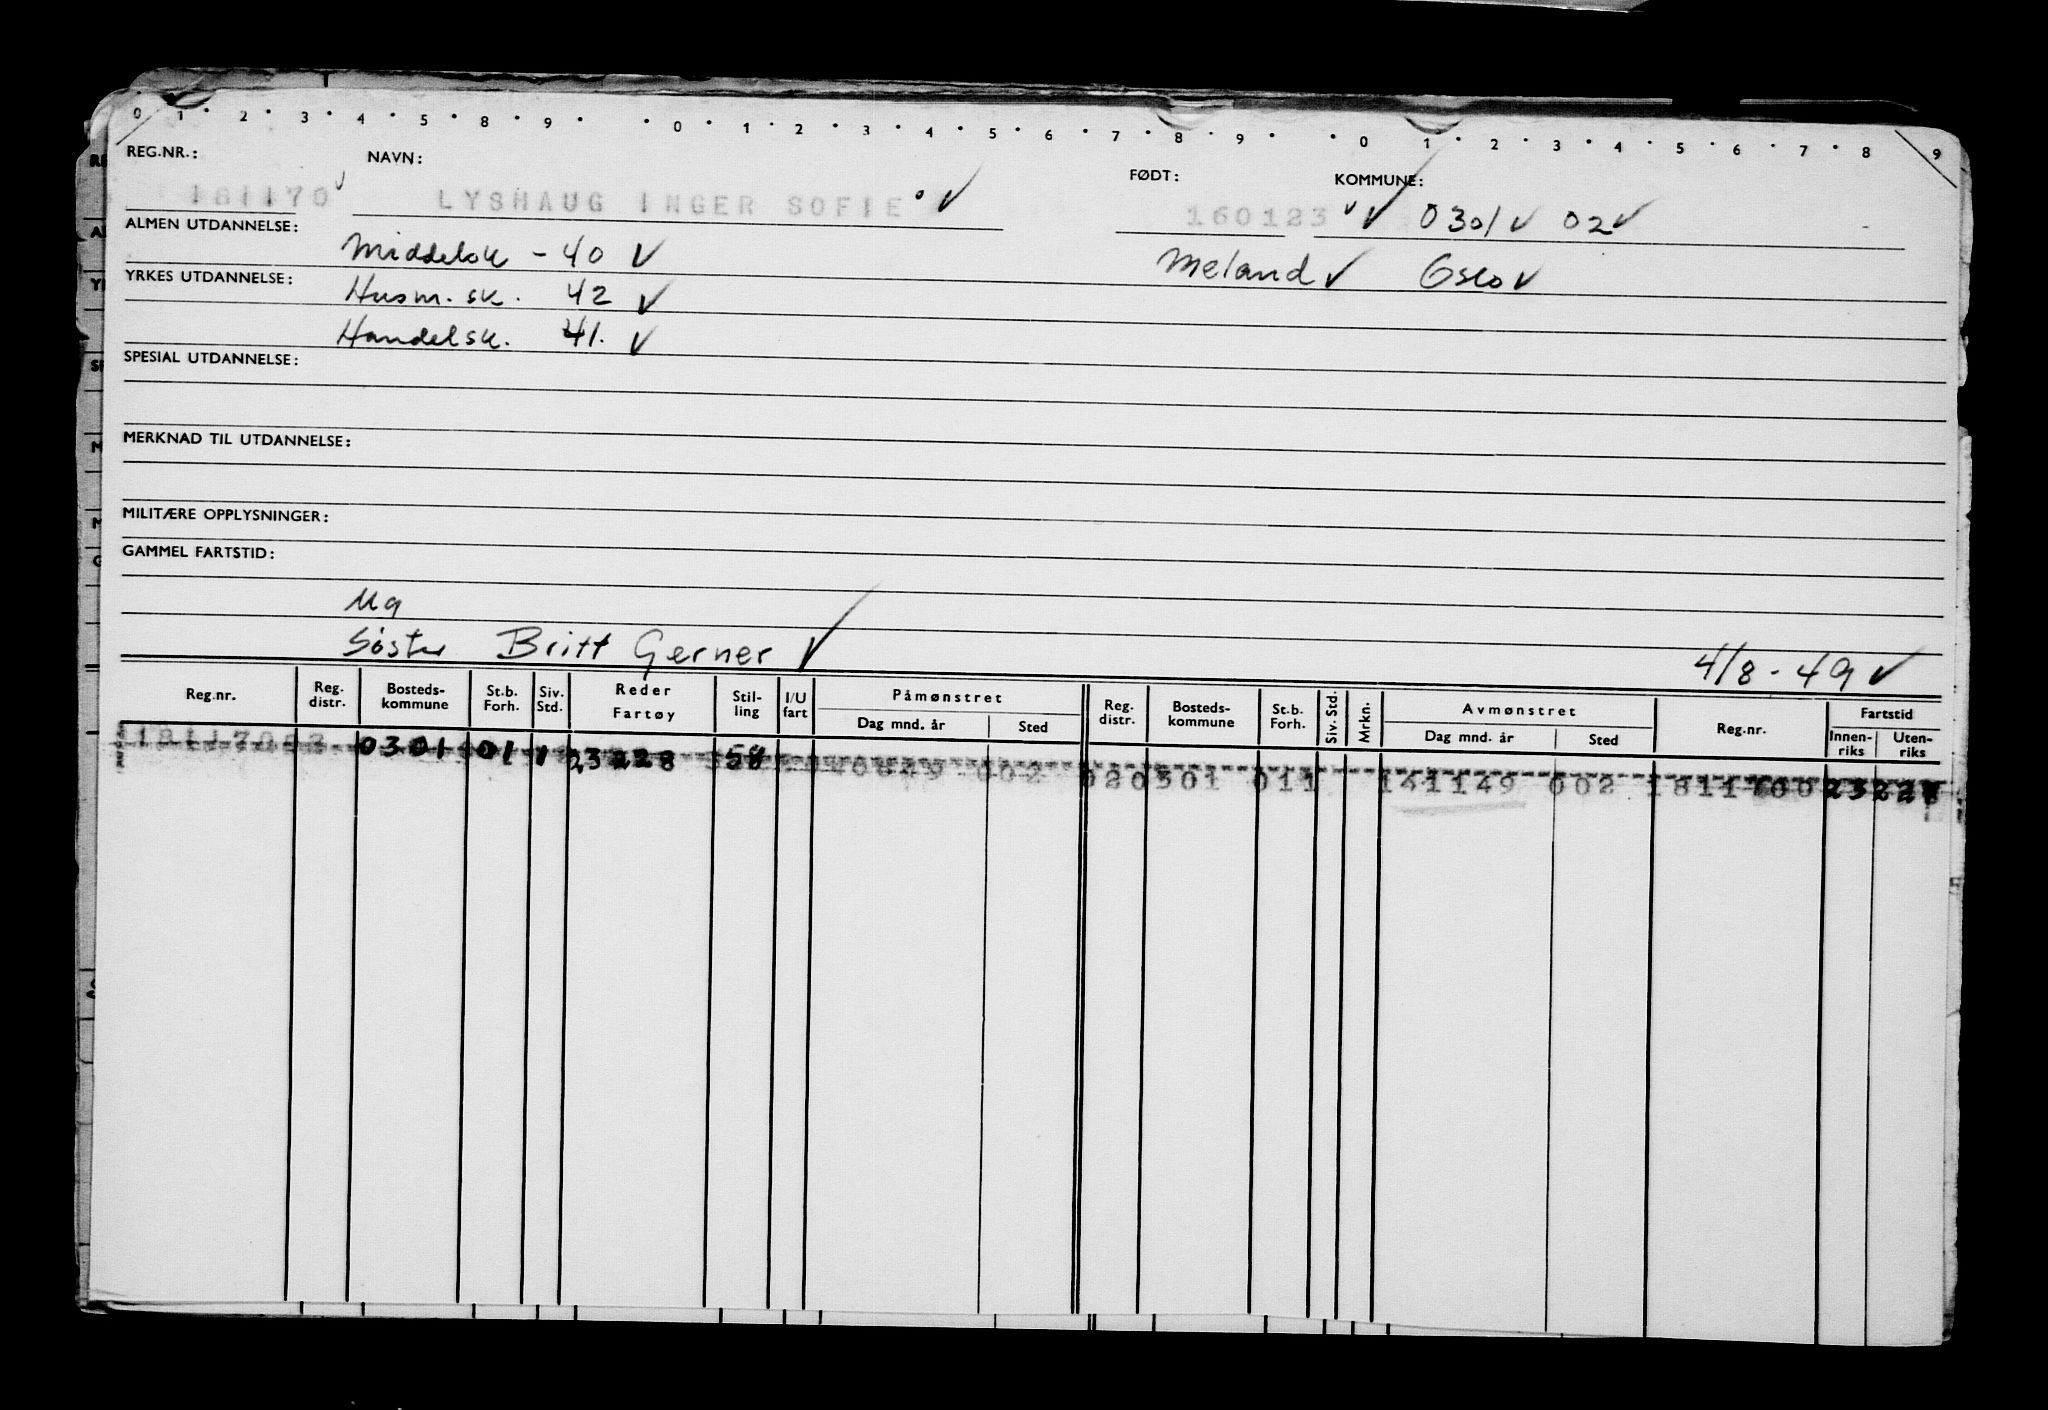 0 · 1 · 2 · 3 · 4 · 5 · 8 · 9 · · 0 · 1 · 2 · 3 · 4 · 5 · 6 · 7 · 8 · 9 · · 0 · 1 · 2 · 3 · 4 · 5 · 6 · 7 · 8 9
REG.NR.: NAVN: FØDT: KOMMUNE:
181170 LYSHAUG INGER SOFIE 160123 0301 02
ALMEN UTDANNELSE: Middelsk - 40 Meland Oslo
YRKES UTDANNELSE: Husm. sk. 42
Handelsk. 41.
SPESIAL UTDANNELSE:
MERKNAD TIL UTDANNELSE:
MILITÆRE OPPLYSNINGER:
GAMMEL FARTSTID:
Ug
Søster Britt Gerner 4/8 - 49
Reg.nr. Reg. distr. Bosteds- kommune St.b. Forh. Siv. Std. Reder Fartøy Stil- ling I/U fart Påmønstret Dag mnd. år Sted Reg. distr. Bosteds- kommune St.b. Forh. Siv. Std. Mrkn. Avmønstret Dag mnd. år Sted Reg.nr. Fartstid Innen- riks Uten- riks
0301 01 1 23228 58 002 02 0301 011 141149 002